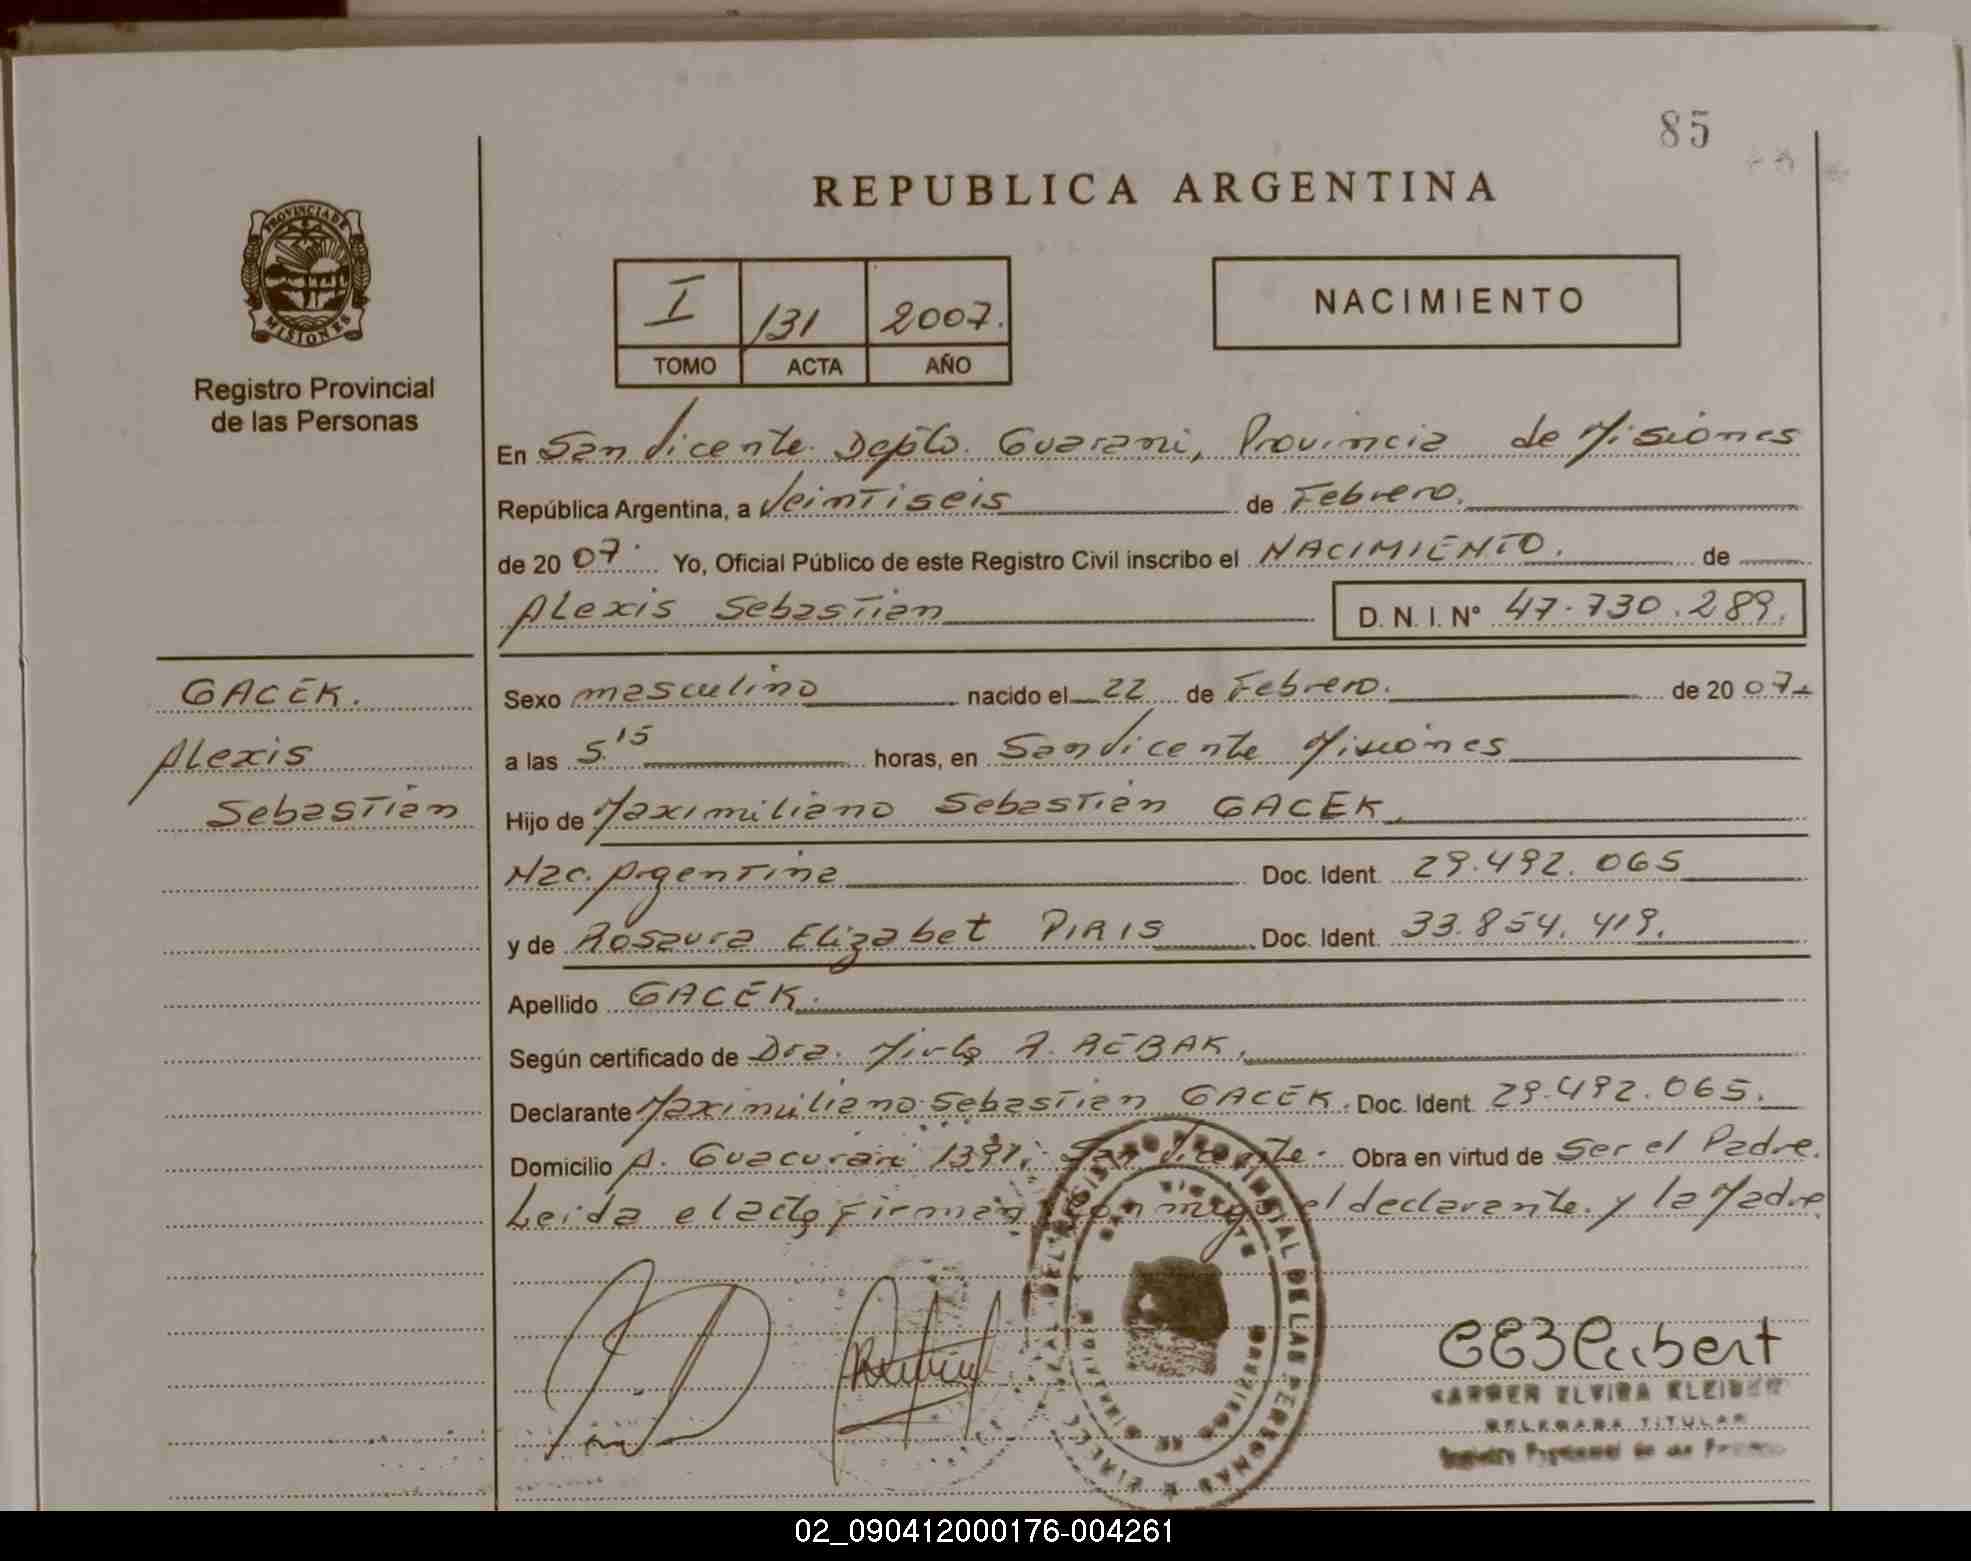 85
REPUBLICA ARGENTINA
PROVINCIA DE
MISIONES
Registro Provincial
de las Personas
I 131 2007.
TOMO ACTA AÑO
NACIMIENTO
En San Vicente. Depto. Guarani, Provincia de Misiones
República Argentina, a Veintiseis de Febrero.
de 2007. Yo, Oficial Público de este Registro Civil inscribo el NACIMIENTO. de
Alexis Sebastian D. N. I. Nº 47.730.289.
GACEK.
Alexis
Sebastian
Sexo masculino nacido el 22 de Febrero. de 2007
a las 5.15 horas, en San Vicente Misiones
Hijo de Maximiliano Sebastian GACEK.
Nac. Argentina Doc. Ident. 29.492.065
y de Rosaura Elizabet PIRIS Doc. Ident. 33.854.419.
Apellido GACEK.
Según certificado de Dra. Mirta R. REBAK.
Declarante Maximiliano Sebastian GACEK. Doc. Ident. 29.492.065.
Domicilio A. Guacurari 1391; San Vicente. Obra en virtud de Ser el Padre.
Leida el acta firman conmigo el declarante. y la Madre
REGISTRO PROVINCIAL DE LAS PERSONAS
SAN VICENTE
CARMEN ELVIRA
DELEGADA TITULAR
02_090412000176-004261